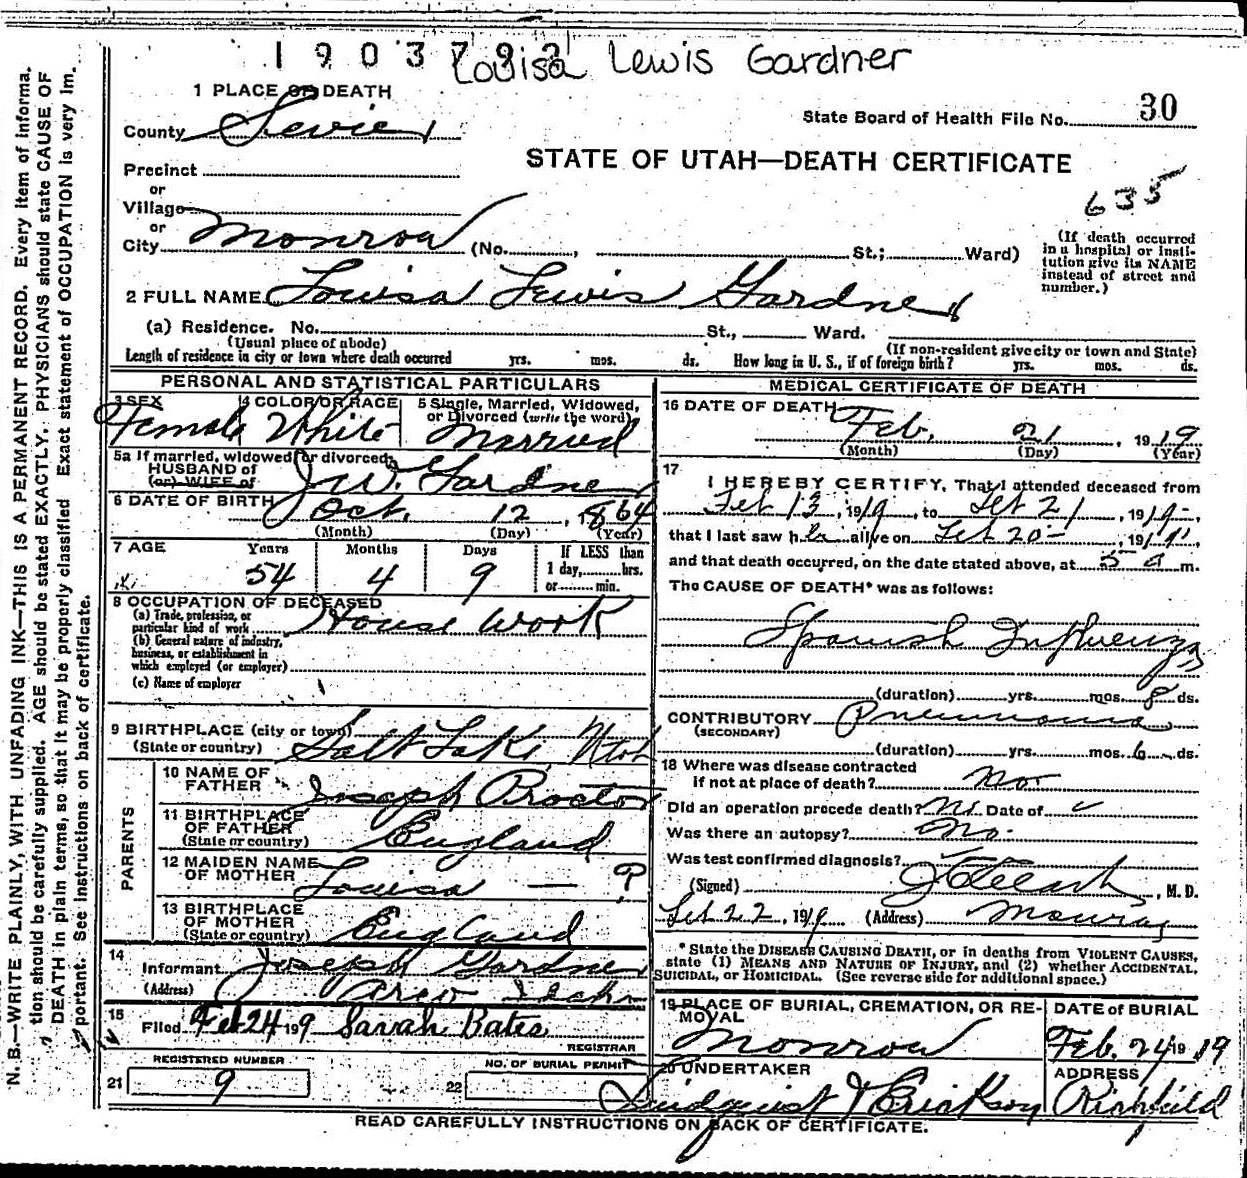 1903792
Louisa Lewis Gardner
1 PLACE OF DEATH
County Sevier
State Board of Health File No. 30
STATE OF UTAH—DEATH CERTIFICATE
635
Precinct
or
Village
or
City Monroe (No. , St.; Ward)
(If death occurred in a hospital or insti-
tution give its NAME
instead of street and
number.)
2 FULL NAME Louisa Lewis Gardner
(a) Residence. No. St., Ward.
(Usual place of abode)
(If non-resident give city or town and State)
Length of residence in city or town where death occurred yrs. mos. ds. How long in U. S., if of foreign birth? yrs. mos. ds.
PERSONAL AND STATISTICAL PARTICULARS
3 SEX
Female
4 COLOR OR RACE
White
5 Single, Married, Widowed,
or Divorced (write the word)
Married
5a If married, widowed or divorced,
HUSBAND of
(or) WIFE of
J W. Gardner
6 DATE OF BIRTH Oct. 12, 1864
(Month) (Day) (Year)
7 AGE Years Months Days
54 4 9
If LESS than
1 day, hrs.
or min.
8 OCCUPATION OF DECEASED
(a) Trade, profession, or
particular kind of work House Work
(b) General nature of industry,
business, or establishment in
which employed (or employer)
(c) Name of employer
9 BIRTHPLACE (city or town)
(State or country) Salt Lake, Utah
PARENTS
10 NAME OF
FATHER Joseph Proctor
11 BIRTHPLACE
OF FATHER
(State or country) England
12 MAIDEN NAME
OF MOTHER Louisa — ?
13 BIRTHPLACE
OF MOTHER
(State or country) England
14
Informant Joseph Gardner
(Address) Arco Idaho
15
Filed Feb 24 1919 Sarah Bates
REGISTRAR
REGISTERED NUMBER
21 9
NO. OF BURIAL PERMIT
22
MEDICAL CERTIFICATE OF DEATH
16 DATE OF DEATH
Feb. 21, 1919
(Month) (Day) (Year)
17
I HEREBY CERTIFY, That I attended deceased from
Feb 13, 1919, to Feb 21, 1919,
that I last saw her alive on Feb 20, 1919,
and that death occurred, on the date stated above, at 5 a m.
The CAUSE OF DEATH* was as follows:
Spanish Influenza
(duration) yrs. mos. 8 ds.
CONTRIBUTORY Pneumonia
(SECONDARY)
(duration) yrs. mos. 6 ds.
18 Where was disease contracted
if not at place of death?
Did an operation precede death? No Date of
Was there an autopsy? No.
Was test confirmed diagnosis?
(Signed) , M. D.
Feb 22, 1919 (Address) Monroe
* State the DISEASE CAUSING DEATH, or in deaths from VIOLENT CAUSES,
state (1) MEANS AND NATURE OF INJURY, and (2) whether ACCIDENTAL,
SUICIDAL, or HOMICIDAL. (See reverse side for additional space.)
19 PLACE OF BURIAL, CREMATION, OR RE-
MOVAL
Monroe
DATE OF BURIAL
Feb. 24 1919
20 UNDERTAKER
Lindquist & Erickson
ADDRESS
Richfield
READ CAREFULLY INSTRUCTIONS ON BACK OF CERTIFICATE.
N. B.—WRITE PLAINLY, WITH UNFADING INK—THIS IS A PERMANENT RECORD. Every item of informa-
tion should be carefully supplied. AGE should be stated EXACTLY. PHYSICIANS should state CAUSE OF
DEATH in plain terms, so that it may be properly classified Exact statement of OCCUPATION is very im-
portant. See instructions on back of certificate.